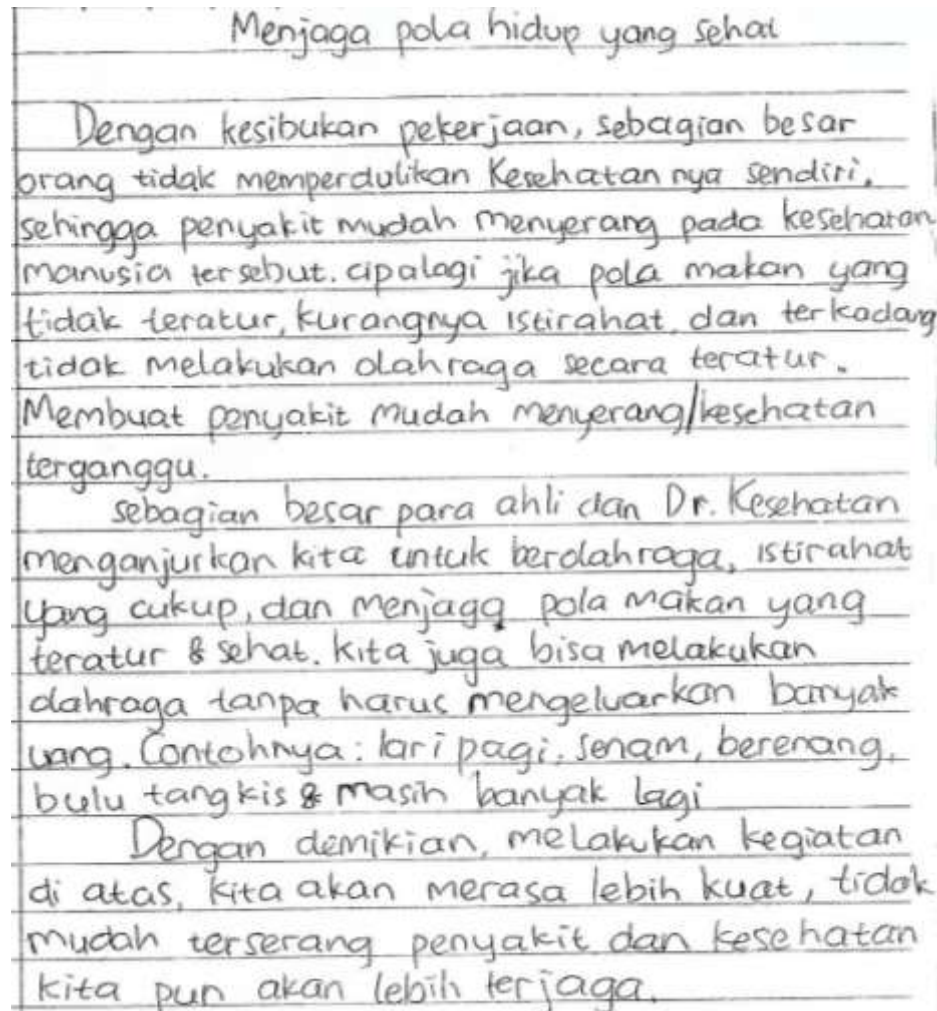 Menjaga pola hidup yang sehat
Dengan kesibukan pekerjaan, sebagian besar
orang tidak memperdulikan Kesehatan nya sendiri.
sehingga penyakit mudah menyerang pada kesehatan
manusia tersebut. apalagi jika pola makan yang
tidak teratur, kurangnya istirahat, dan terkadang
tidak melakukan olahraga secara teratur.
Membuat penyakit mudah menyerang/kesehatan
terganggu.
sebagian besar para ahli dan Dr. Kesehatan
menganjurkan kita untuk berolahraga, istirahat
yang cukup, dan menjaga pola makan yang
teratur & sehat. kita juga bisa melakukan
olahraga tanpa harus mengeluarkan banyak
uang. Contohnya: lari pagi, senam, berenang,
bulu tangkis & masih banyak lagi
Dengan demikian, melakukan kegiatan
di atas, kita akan merasa lebih kuat, tidak
mudah terserang penyakit dan kesehatan
kita pun akan lebih terjaga.